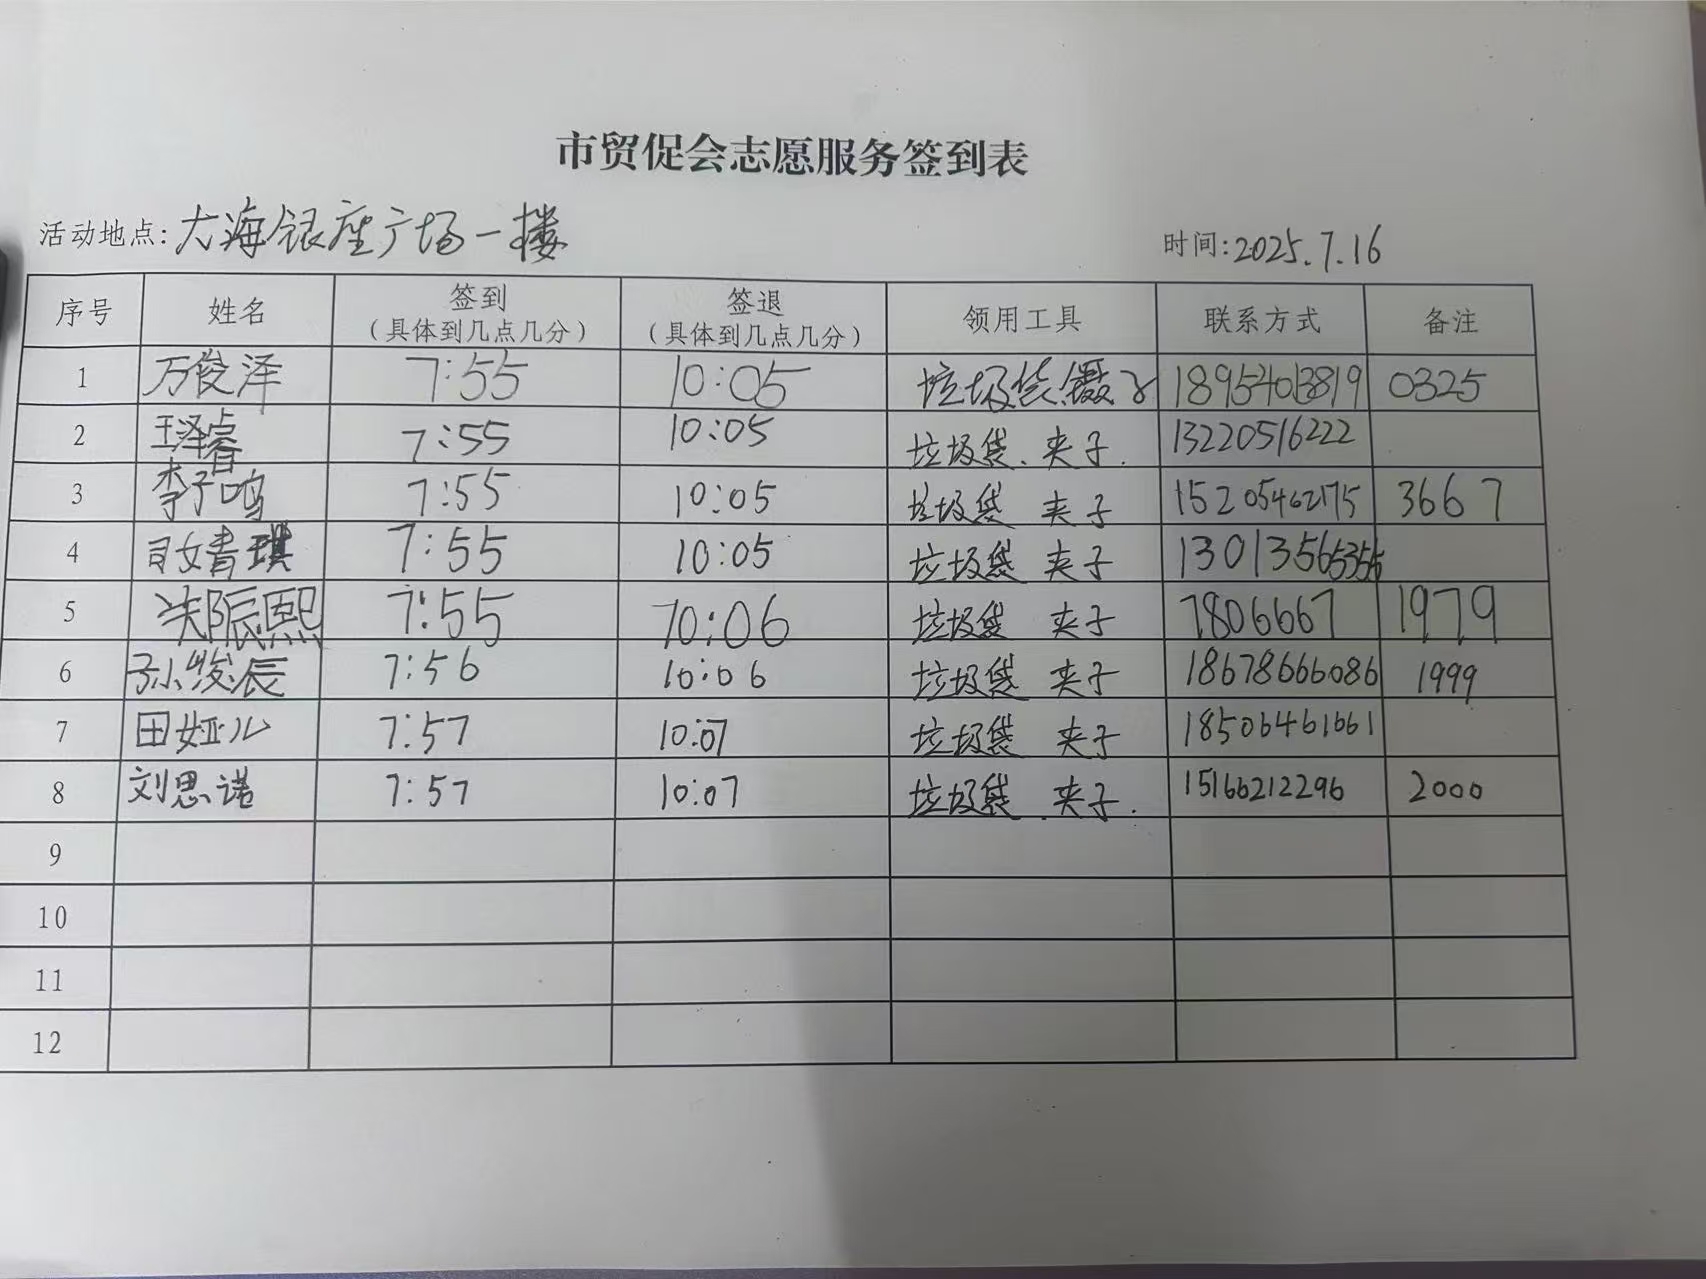 市贸促会志愿服务签到表
活动地点:大海银座广场一楼 时间:2025.7.16
序号 姓名 签到 (具体到几点几分) 签退 (具体到几点几分) 领用工具 联系方式 备注
1 万俊泽 7:55 10:05 垃圾袋镊子 18954013819 0325
2 王泽睿 7:55 10:05 垃圾袋、夹子. 13220516222
3 李子鸣 7:55 10:05 垃圾袋 夹子 15205462175 3667
4 青琪 7:55 10:05 垃圾袋 夹子 13013565355
5 振熙 7:55 10:06 垃圾袋 夹子 7806667 1979
6 孙浚辰 7:56 10:06 垃圾袋 夹子 18678666086 1999
7 田娅儿 7:57 10:07 垃圾袋 夹子 18506461661
8 刘思诺 7:57 10:07 垃圾袋 夹子. 15166212296 2000
9
10
11
12